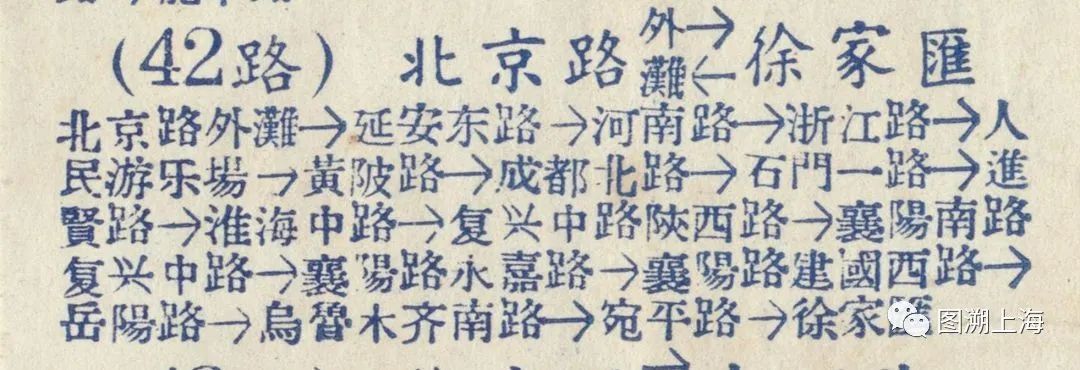 (42路) 北京路外灘→←徐家匯
北京路外灘→延安东路→河南路→浙江路→人
民游乐場→黃陂路→成都北路→石門一路→進
賢路→淮海中路→复兴中路陝西路→襄陽南路
复兴中路→襄陽路永嘉路→襄陽路建國西路→
岳陽路→烏魯木齐南路→宛平路→徐家匯
图溯上海